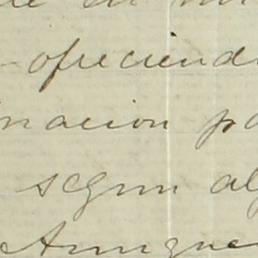 ofreciend
nacion pa
segun al
Aunque